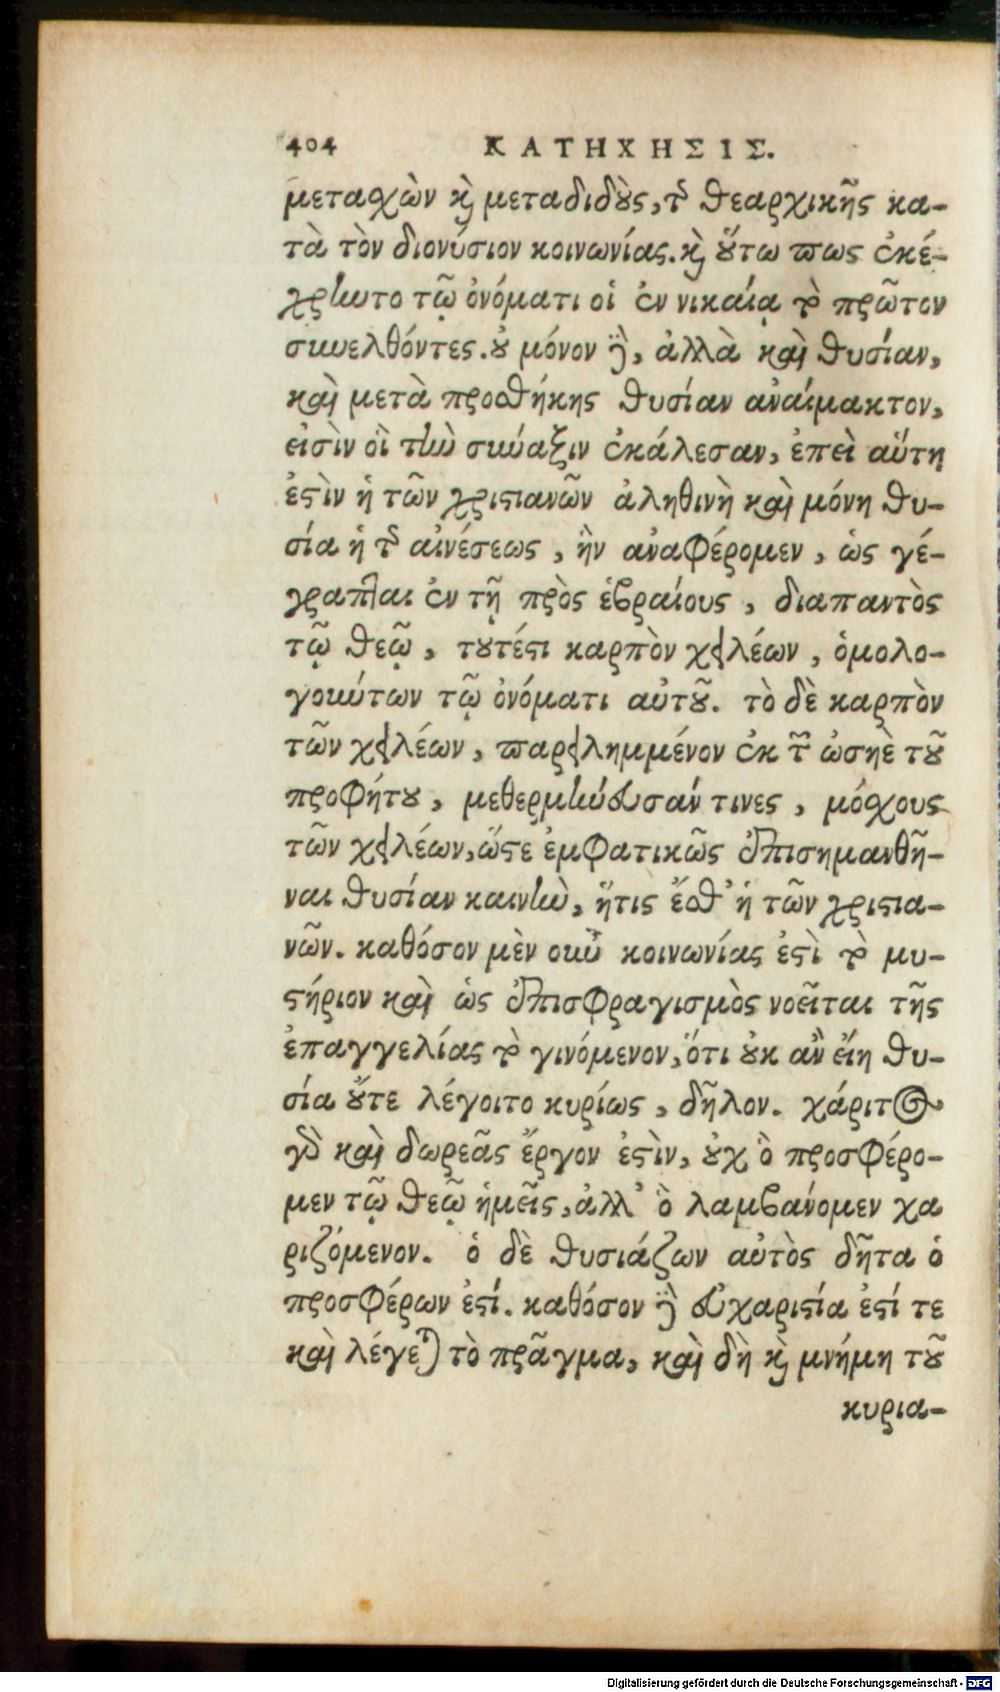 404 ΚΑΤΗΧΗΣΙΣ.
μεταχὼν καὶ μεταδιδοὺς, τῆς θεαρχικῆς κα-
τὰ τὸν διονύσιον κοινωνίας. καὶ οὕτω πως ἐκέ-
χρηντο τῷ ὀνόματι οἱ ἐν νικαίᾳ τὸ πρῶτον
συνελθόντες. οὐ μόνον δὲ, ἀλλὰ καὶ θυσίαν,
καὶ μετὰ προσθήκης θυσίαν ἀναίμακτον,
εἰσὶν οἳ τὴν σύναξιν ἐκάλεσαν, ἐπεὶ αὕτη
ἐστὶν ἡ τῶν χριστιανῶν ἀληθινὴ καὶ μόνη θυ-
σία ἡ τῆς αἰνέσεως, ἣν ἀναφέρομεν, ὡς γέ-
γραπται ἐν τῇ πρὸς ἑβραίους, διαπαντὸς
τῷ θεῷ, τουτέστι καρπὸν χειλέων, ὁμολο-
γούντων τῷ ὀνόματι αὐτοῦ. τὸ δὲ καρπὸν
τῶν χειλέων, παρειλημμένον ἐκ τοῦ ὡσηὲ τοῦ
προφήτου, μεθερμήνευσάν τινες, μόσχους
τῶν χειλέων, ὥστε ἐμφατικῶς ἐπισημανθῆ-
ναι θυσίαν καινὴν, ἥτις ἔσθ' ἡ τῶν χριστια-
νῶν. καθόσον μὲν οὖν κοινωνίας ἐστὶ τὸ μυ-
στήριον καὶ ὡς ἐπισφραγισμὸς νοεῖται τῆς
ἐπαγγελίας τὸ γινόμενον, ὅτι οὐκ ἂν εἴη θυ-
σία οὔτε λέγοιτο κυρίως, δῆλον. χάριτος
γὰρ καὶ δωρεᾶς ἔργον ἐστὶν, οὐχ ὃ προσφέρο-
μεν τῷ θεῷ ἡμεῖς, ἀλλ' ὃ λαμβάνομεν χα
ριζόμενον. ὁ δὲ θυσιάζων αὐτὸς δῆτα ὁ
προσφέρων ἐστί. καθόσον δὲ εὐχαριστία ἐστί τε
καὶ λέγεται τὸ πρᾶγμα, καὶ δὴ καὶ μνήμη τοῦ
κυρια-
Digitalisierung gefördert durch die Deutsche Forschungsgemeinschaft - DFG